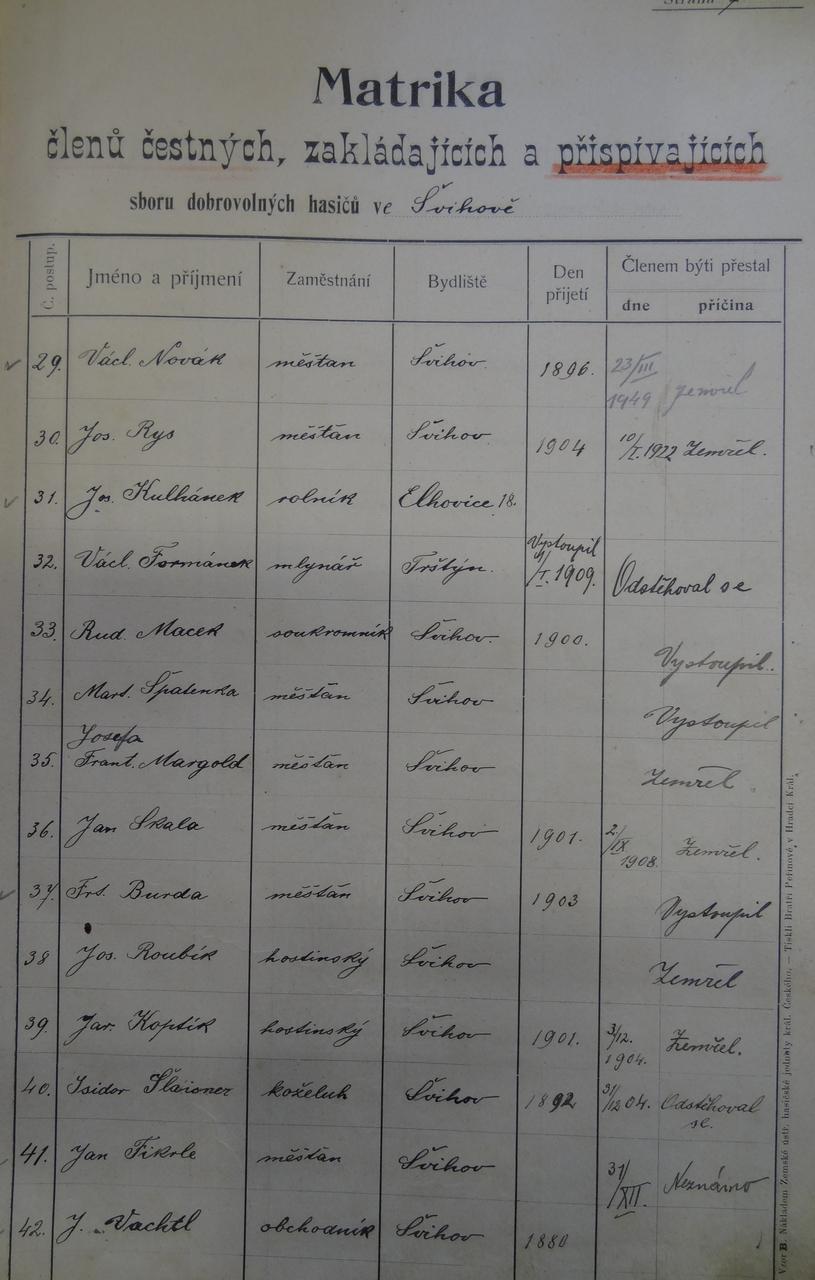 Strana
Matrika
členů čestných, zakládajících a přispívajících
sboru dobrovolných hasičů ve Švihově
Č. postup. Jméno a příjmení Zaměstnání Bydliště Den přijetí Členem býti přestal
dne příčina
29. Václ. Novák měštan Švihov 1896. 23/III 1949 zemřel
30. Jos. Rys měštan Švihov 1904 10/I. 1922 Zemřel.
31. Jos. Kulhánek rolník Elhovice 18.
32. Václ. Formánek mlynář Trštýn. Vystoupil /I. 1909. Odstěhoval se
33. Rud. Macek soukromník Švihov. 1900. Vystoupil.
34. Mart. Špatenka měštan Švihov Vystoupil
Josefa
35. Frant. Margold měštan Švihov Zemřel.
36. Jan Skala měštan Švihov 1901. 2/IX 1908. Zemřel.
37. Frt. Burda měštan Švihov 1903 Vystoupil
38 Jos. Roubík hostinský Švihov Zemřel
39. Jar. Koptík hostinský Švihov 1901. 3/12. 1904. Zemřel.
40. Isidor koželuh Švihov 1892 31/12 04. Odstěhoval se.
41. Jan Fikrle měštan Švihov 31/XII. Neznámo
42. J. Vachtl obchodník Švihov 1880
Vzor B. Nákladem Zemské ústř. hasičské jednoty král. Českého. — Tiskli Bratři Peřinové v Hradci Král.